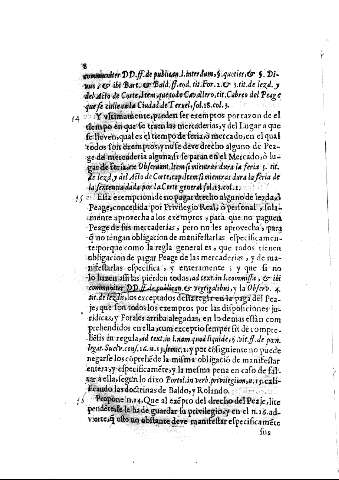 8
communiter DD. ff. de publican. l. interdum, §. quoties, & §. Di-
uus, & ibi Bart. & Bald. ff. eod. tit. For. 2. & 3. tit. de lezd. y
del Acto de Corte, Item, que todo Cavallero, tit. Cabreo del Peage
que se cullen en la Ciudad de Teruel, fol. 28. col. 3.
14 Y vltimamente, pueden ser exemptos por razon de el
tiempo en que se traen las mercaderias, y del Lugar a que
se lleven, qual es el tiempo de feria, ò mercado, en el qual
todos son exemptos, y no se deve drecho alguno de Pea-
ge de mercaderia alguna, si se paran en el Mercado, ò lu-
gar de feria, ex Observant. Item si mientras dura la feria 5. tit.
de lezd. y del Acto de Corte, cap. Item si mientras dura la feria de
la sentencia dada por la Corte general fol. 13. col. 1.
15 Esta exempcion de no pagar drecho alguno de lezda, ò
Peage, concedida por Privilegio Real, ò personal, sola-
mente aprovecha a los exemptos, para que no paguen
Peage de sus mercaderias, pero no les aprovecha, para
q̃ no tengan obligacion de manifestarlas especificamen-
te; porque como la regla general es, que todos tienen
obligacion de pagar Peage de las mercaderias, y de ma-
nifestarlas especifica, y enteramente, y que si no
lo hizen assi las pierden todas, ad text. in l. commissa, & ibi
communiter DD. ff. de publican. & vectigalibus, y la Observ. 4.
tit. de lezdis, los exceptados desta regla en la paga del Pea-
je, que son todos los exemptos por las disposiciones ju-
ridicas, y Forales arriba alegadas, en lo demas estàn com-
prehendidos en ella, cum exceptio semper sit de compre-
hensis in regula, ad text. in l. nam quod liquide, §. vlt. ff. de pen.
legat. Suelv. cons. 16. n. 13. semic. 2. y por consiguiente no puede
negarse los coprehède la misma obligacio de manifestar
entera, y especificamète, y la misma pena en caso de fal-
tar a ella, segun lo dixo Portol. in verb. privilegium, n. 15. cali-
ficando las doctrinas de Baldo, y Rolando.
16 Propone n. 14. Que al exèpto del drecho del Peaje, lite
pendente se le ha de guardar su privilegio, y en el n. 18. ad-
vierte, q̃ esto no obstante deve manifestar especificamẽte
sus